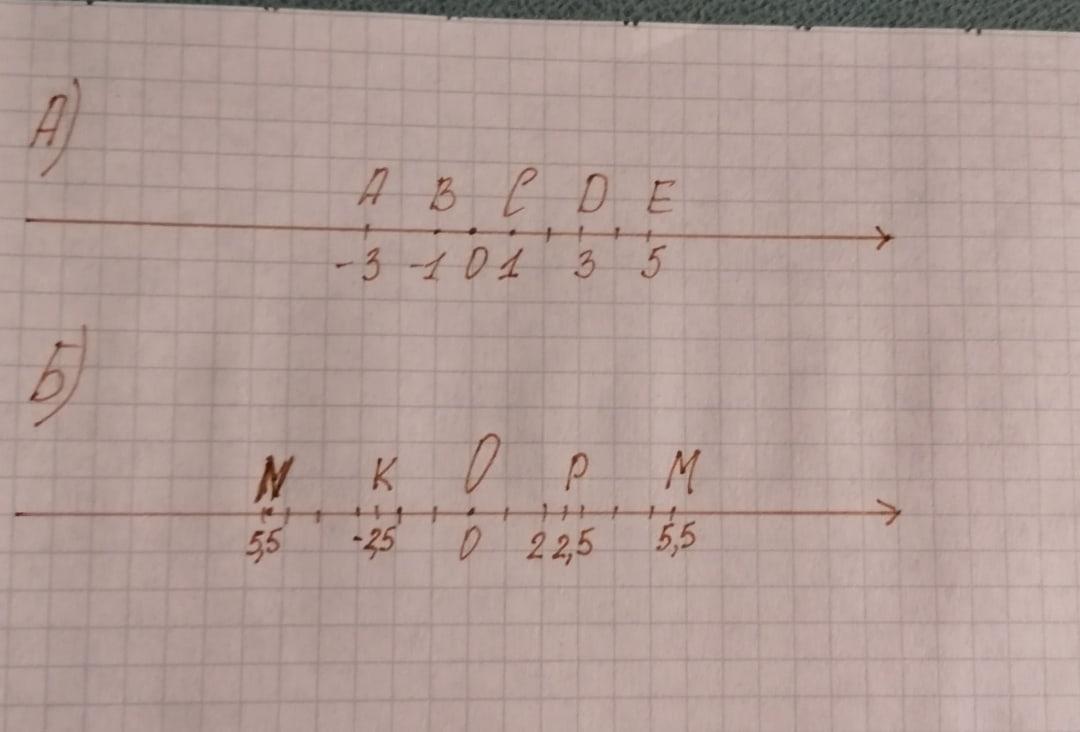 А)
A B C D E
-3 -1 0 1 3 5
Б)
N K O P M
5,5 -2,5 0 2 2,5 5,5